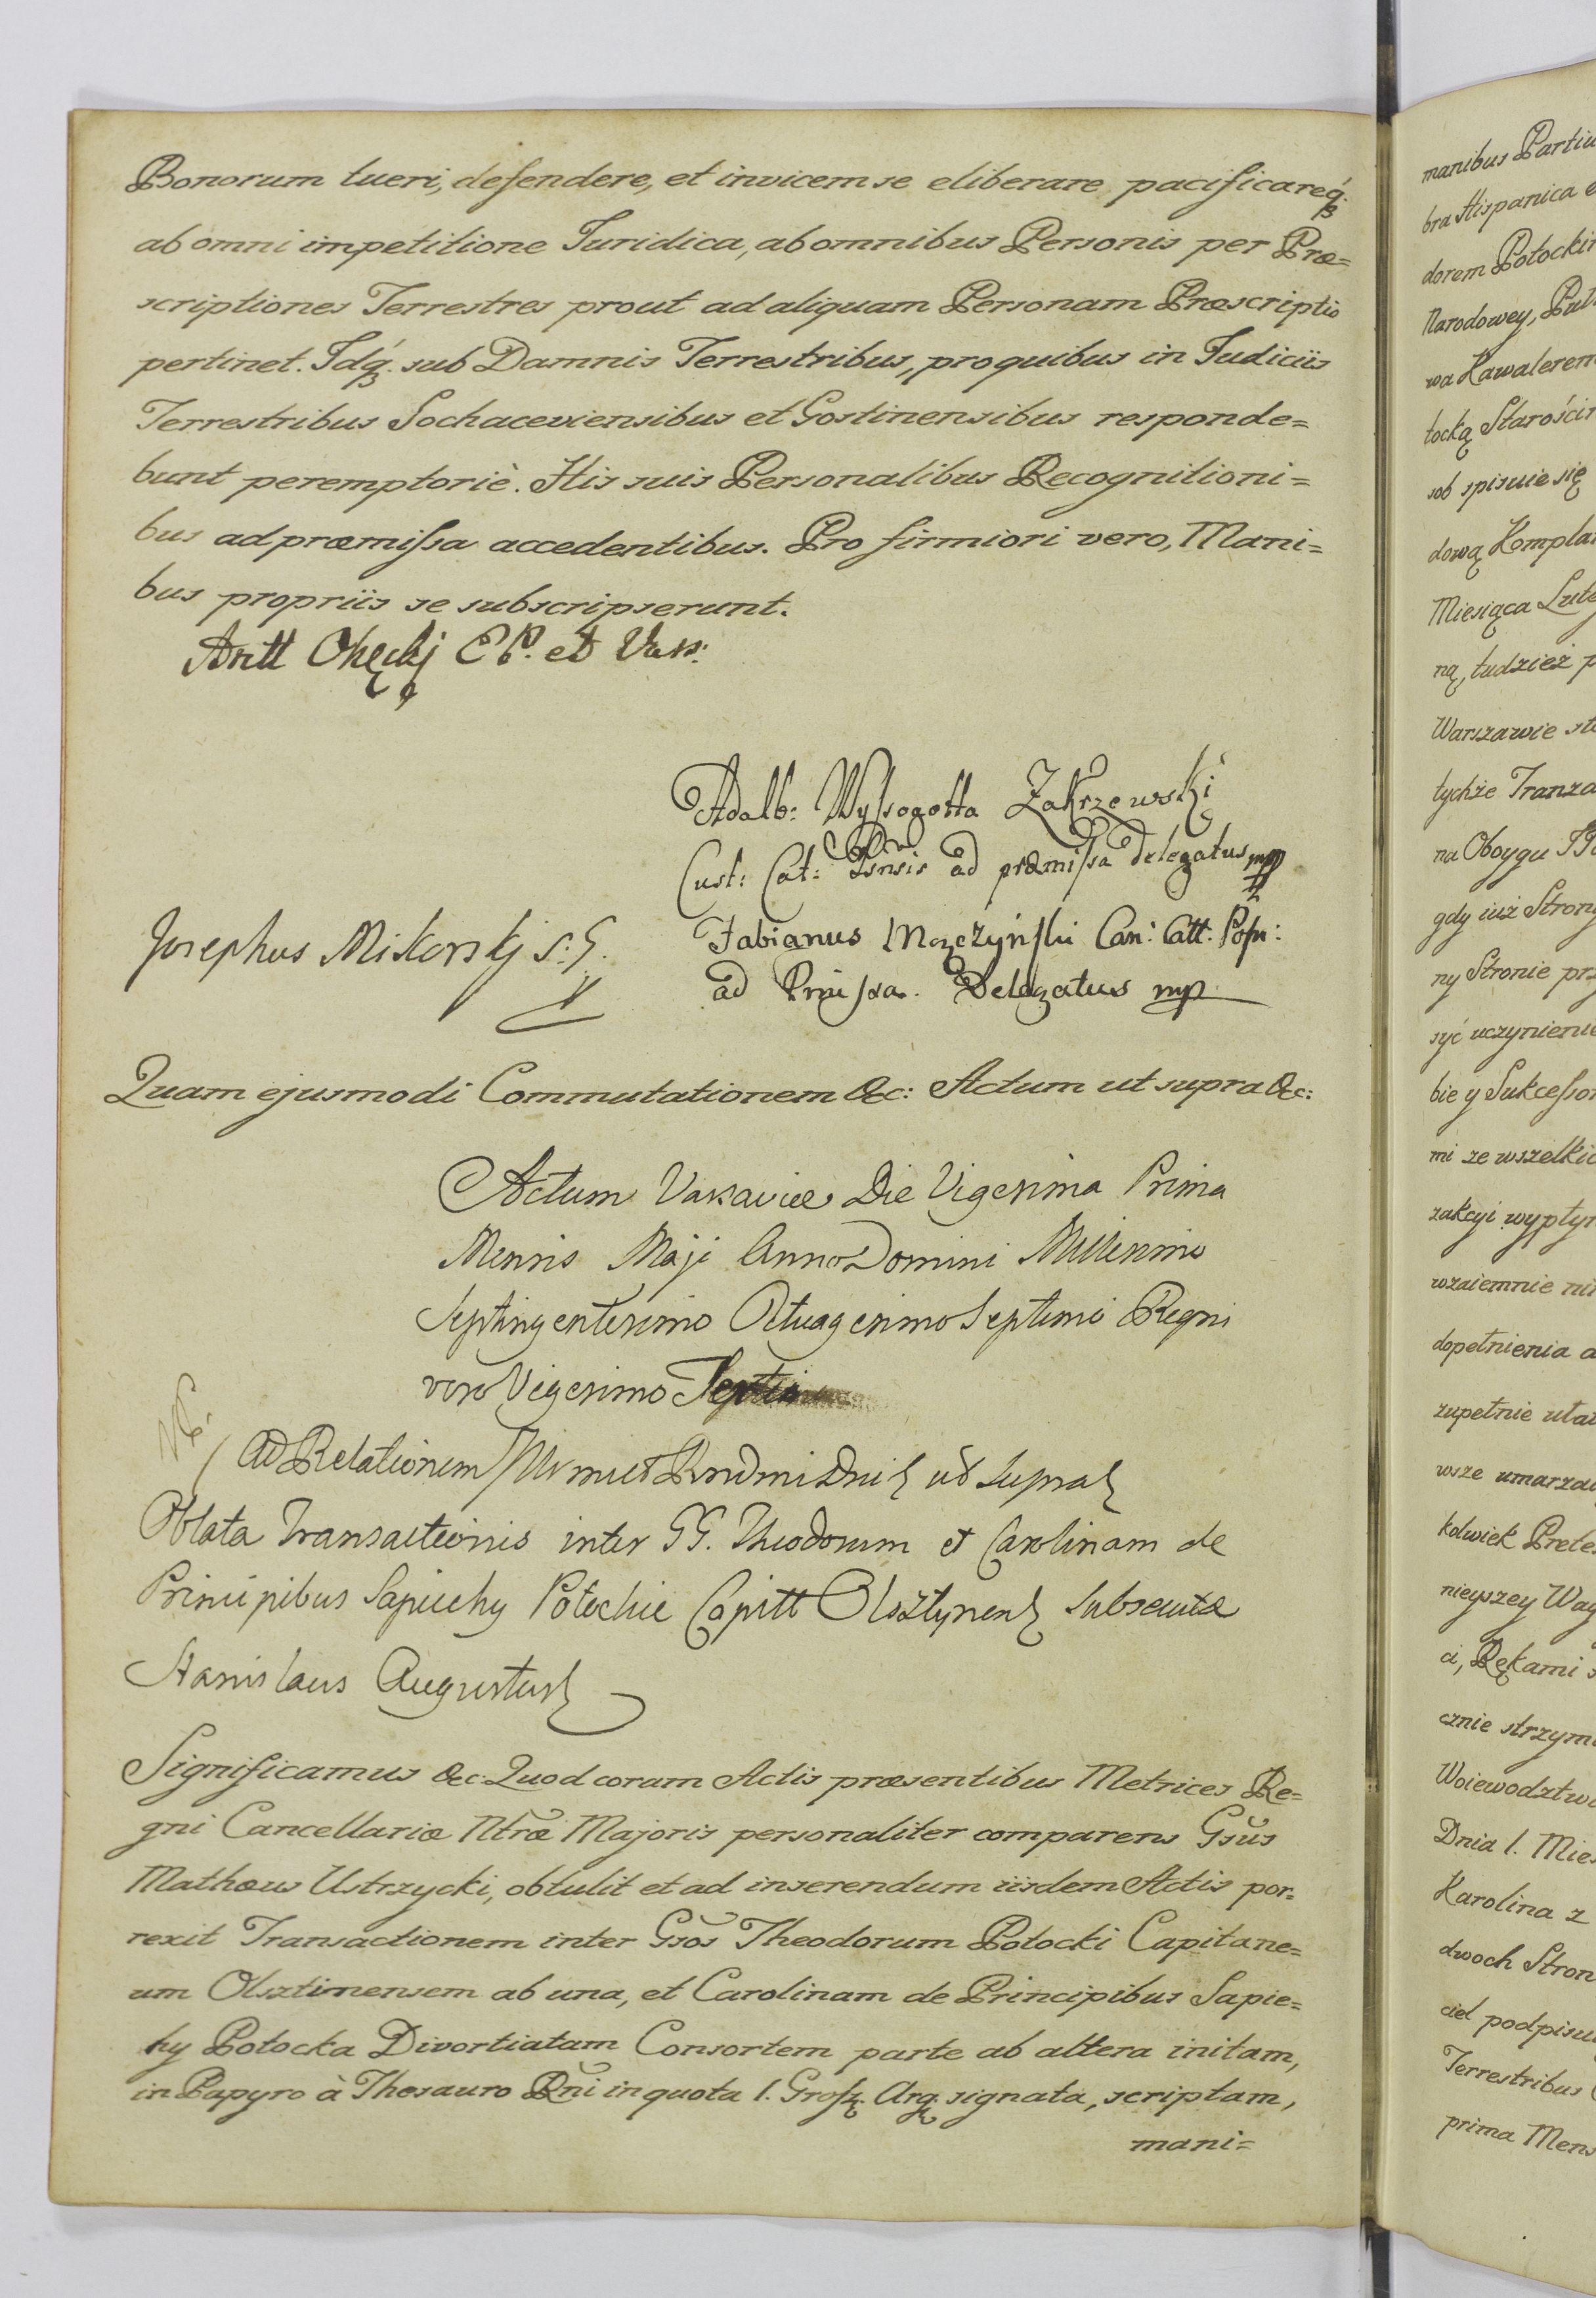 Bonorum tueri, defendere, et invicem se eliberare pacificareq́.
ab omni impetitione Juridica, ab omnibus Personis per Præ=
scriptiones Terrestres prout ad aliquam Personam Præscriptio
pertinet. Idq́. sub Damnis Terrestribus, pro quibus in Judiciis
Terrestribus Sochaceviensibus et Gostinensibus responde=
bunt peremptoriè. His suis Personalibus Recognitioni=
bus ad præmissa accedentibus. Pro firmiori vero, Mani=
bus propriis se subscripserunt.
Antt Okęckj E P. et Vars:
Adalb: Wyssogotta Zakrzewski
Cust: Cat: Psnsis ad præmissa delegatus mpp
Josephus Mikorskj S: G.
Fabianus Moszczyński Can: Catt: Posn:
ad Prmissa. Delegatus mp
Quam ejusmodi Commutationem &c: Actum ut supra &c:
Actum Varsaviæ Die Vigesima Prima
Mensis Maji Anno Domini Millesimo
Septingentesimo Octuagesimo Septimo Regni
vero Vigesimo Septimo
Ad Relationem ut supra
Oblata Transactionis inter GG. Theodorum et Carolinam de
Principibus Sapiehy Potockie Capitt Olsztynens subsecuta
Stanislaus Augustus
Significamus &c: Quod coram Actis præsentibus Metrices Re=
gni Cancellariæ Ntræ Majoris personaliter comparens Gsus
Mathæus Ustrzycki, obtulit et ad inserendum iisdem Actis por=
rexit Transactionem inter Gsos Theodorum Potocki Capitane=
um Olsztinensem ab una, et Carolinam de Principibus Sapie=
hy Potocka Divortiatam Consortem parte ab altera initam,
in Papyro à Thesauro Rni in quota 1. Grosz. Arg. signata, scriptam,
mani=
manibus Partiu
bra Hispanica e
dorem Potockim
Narodowey, Puł
wa Kawalerem
tocką Starościn
sob spisuie się
dową Komplan
Miesiąca Lute
ną, tudzież p
Warszawie st
tychże Tranza
na Oboygu
gdy iuż Strony
ny Stronie prz
syć uczynienie
bie y Sukcessor
mi ze wszelkie
zakcyi wypłyn
wzaiemnie ni
dopełnienia a
zupełnie uła
wsze umarza
kolwiek Prete
nieyszey Way
ci, Rękami s
cznie strzyma
Woiewodztwa
Dnia 1. Mies
Karolina z
dwoch Stron
ciel podpisu
Terrestribus
prima Mens